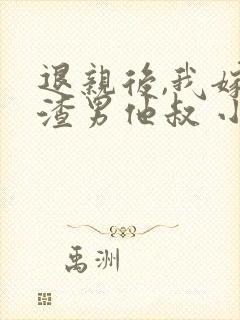 退親後,我嫁
渣男他叔 小
禹洲